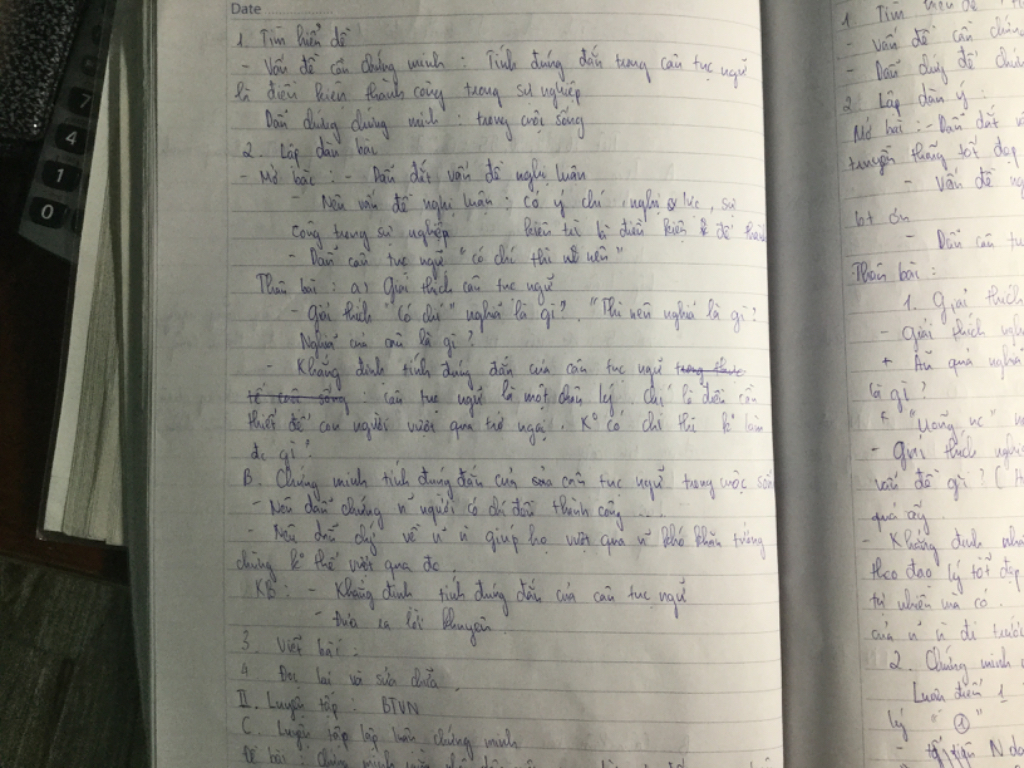 Date
1. Tìm hiểu đề
- Vấn đề cần chứng minh : Tính đúng đắn trong câu tục ngữ
là điều kiện thành công trong sự nghiệp
Dẫn chứng chứng minh : trong cuộc sống
2. Lập dàn bài
- Mở bài : - Dẫn dắt vấn đề nghị luận
- Nêu vấn đề nghị luận : có ý chí , nghị lực , sự
công trong sự nghiệp kiên trì là điều kiện để thành
- Dẫn câu tục ngữ "có chí thì nên"
Thân bài : a) Giải thích câu tục ngữ
- Giải thích "Có chí" nghĩa là gì? "Thì nên nghĩa là gì?
Nghĩa của câu là gì?
- Khẳng định tính đúng đắn của câu tục ngữ trong thực
tế cuộc sống : câu tục ngữ là một chân lý . chí là điều cần
thiết để con người vượt qua trở ngại . K° có chí thì k° làm
đc gì
B. Chứng minh tính đúng đắn của câu tục ngữ trong cuộc sống
- Nêu dẫn chứng n~ người có chí đều thành công ...
- Nêu dẫn chứng về n~ giúp họ vượt qua n~ khó khăn tưởng
chừng k thể vượt qua đc .
KB : - Khẳng định tính đúng đắn của câu tục ngữ
- Đưa ra lời khuyên
3. Viết bài :
4 Đọc lại và sửa chữa .
II. Luyện tập : BTVN
C. Luyện tập lập luận chứng minh
Đề bài : Chứng minh
1. Tìm hiểu đề
- Vấn đề cần chứng
- Dẫn chứng để chứng
2. Lập dàn ý :
Mở bài : - Dẫn dắt
truyền thống tốt đẹp
- Vấn đề
ơn
- Dẫn câu
Thân bài :
1. Giải thích
- Giải thích nghĩa
+ Ăn quả nghĩa
là gì?
+ "Uống nc"
- Giải thích nghĩa
vấn đề gì? (
quả ấy
- Khẳng định
theo đạo lý tốt đẹp
tự nhiên mà có .
của n~ đi trước
2. Chứng minh
Luận điểm 1
lý